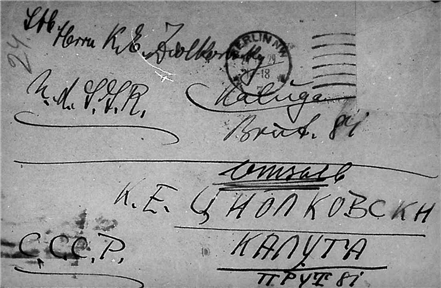 Herrn K. E. Ziolkowsky
BERLIN NW
U. d. S. S. R.
Kaluga
Brut. 81
К. Е. ЦИОЛКОВСКИ
С.С.С.Р.
КАЛУГА
ПРУТ 81
24